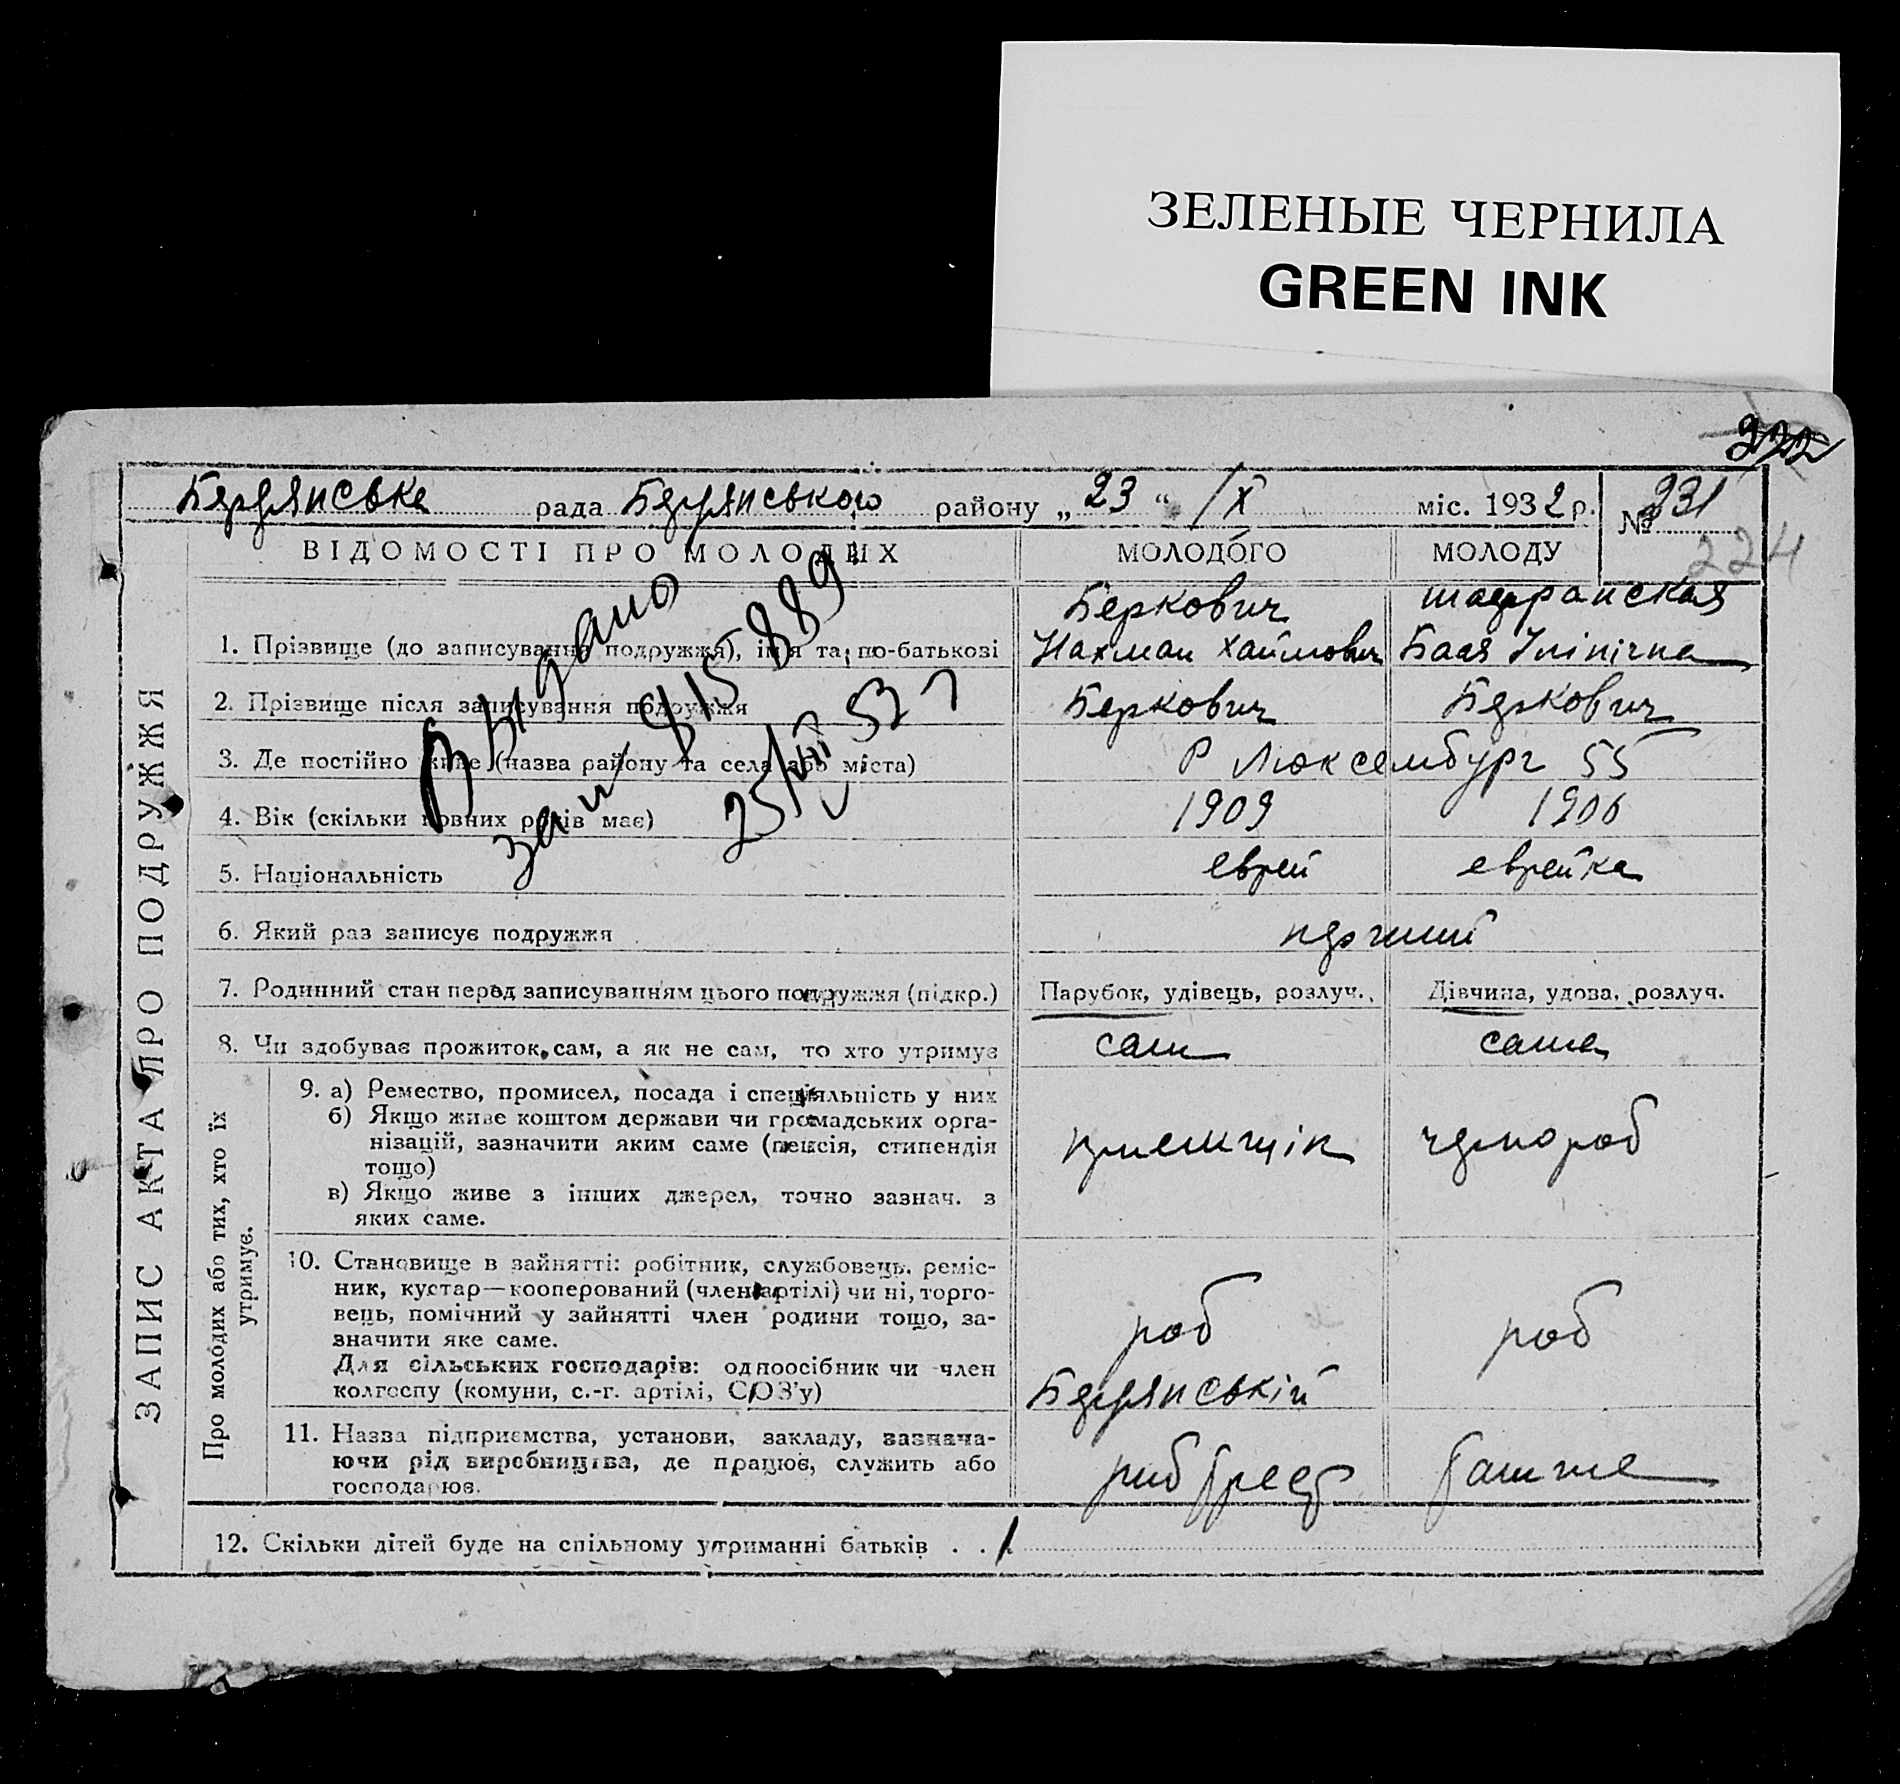 ЗЕЛЕНЫЕ ЧЕРНИЛА
GREEN INK
322
Бердянська рада Бердянського району „23“ IX міс. 1932 р. № 231
224
ВІДОМОСТІ ПРО МОЛОДИХ МОЛОДОГО МОЛОДУ
Беркович Шафранская
1. Прізвище (до записування подружжя), ім'я та по-батькові Нахман Хаймович Бася
2. Прізвище після записування подружжя Беркович Беркович
3. Де постійно живе (назва району та села або міста) Р Люксембург 55
4. Вік (скільки повних років має) 1909 1906
5. Національність еврей еврейка
6. Який раз записує подружжя перший
7. Родинний стан перед записуванням цього подружжя (підкр.) Парубок, удівець, розлуч. Дівчина, удова, розлуч.
8. Чи здобуває прожиток сам, а як не сам, то хто утримує сам сама
9. а) Ремество, промисел, посада і спеціяльність у них
б) Якщо живе коштом держави чи громадських орга-
нізацій, зазначити яким саме (пенсія, стипендія
тощо)
приемщік чернороб
в) Якщо живе з інших джерел, точно зазнач. з
яких саме.
10. Становище в зайнятті: робітник, службовець, реміс-
ник, кустар—кооперований (член артілі) чи ні, торго-
вець, помічний у зайнятті член родини тощо, за-
значити яке саме.
роб роб
Для сільських господарів: одноосібник чи член
колгоспу (комуни, с.-г. артілі, СОЗ'у)
Бердянській
11. Назва підприємства, установи, закладу, зазнача-
ючи рід виробництва, де працює, служить або
господарює.
риб трест
12. Скільки дітей буде на спільному утриманні батьків . . 1
ЗАПИС АКТА ПРО ПОДРУЖЖЯ
Про молодих або тих, хто їх
утримує.
Выдано
815889
25/VIII 53 г